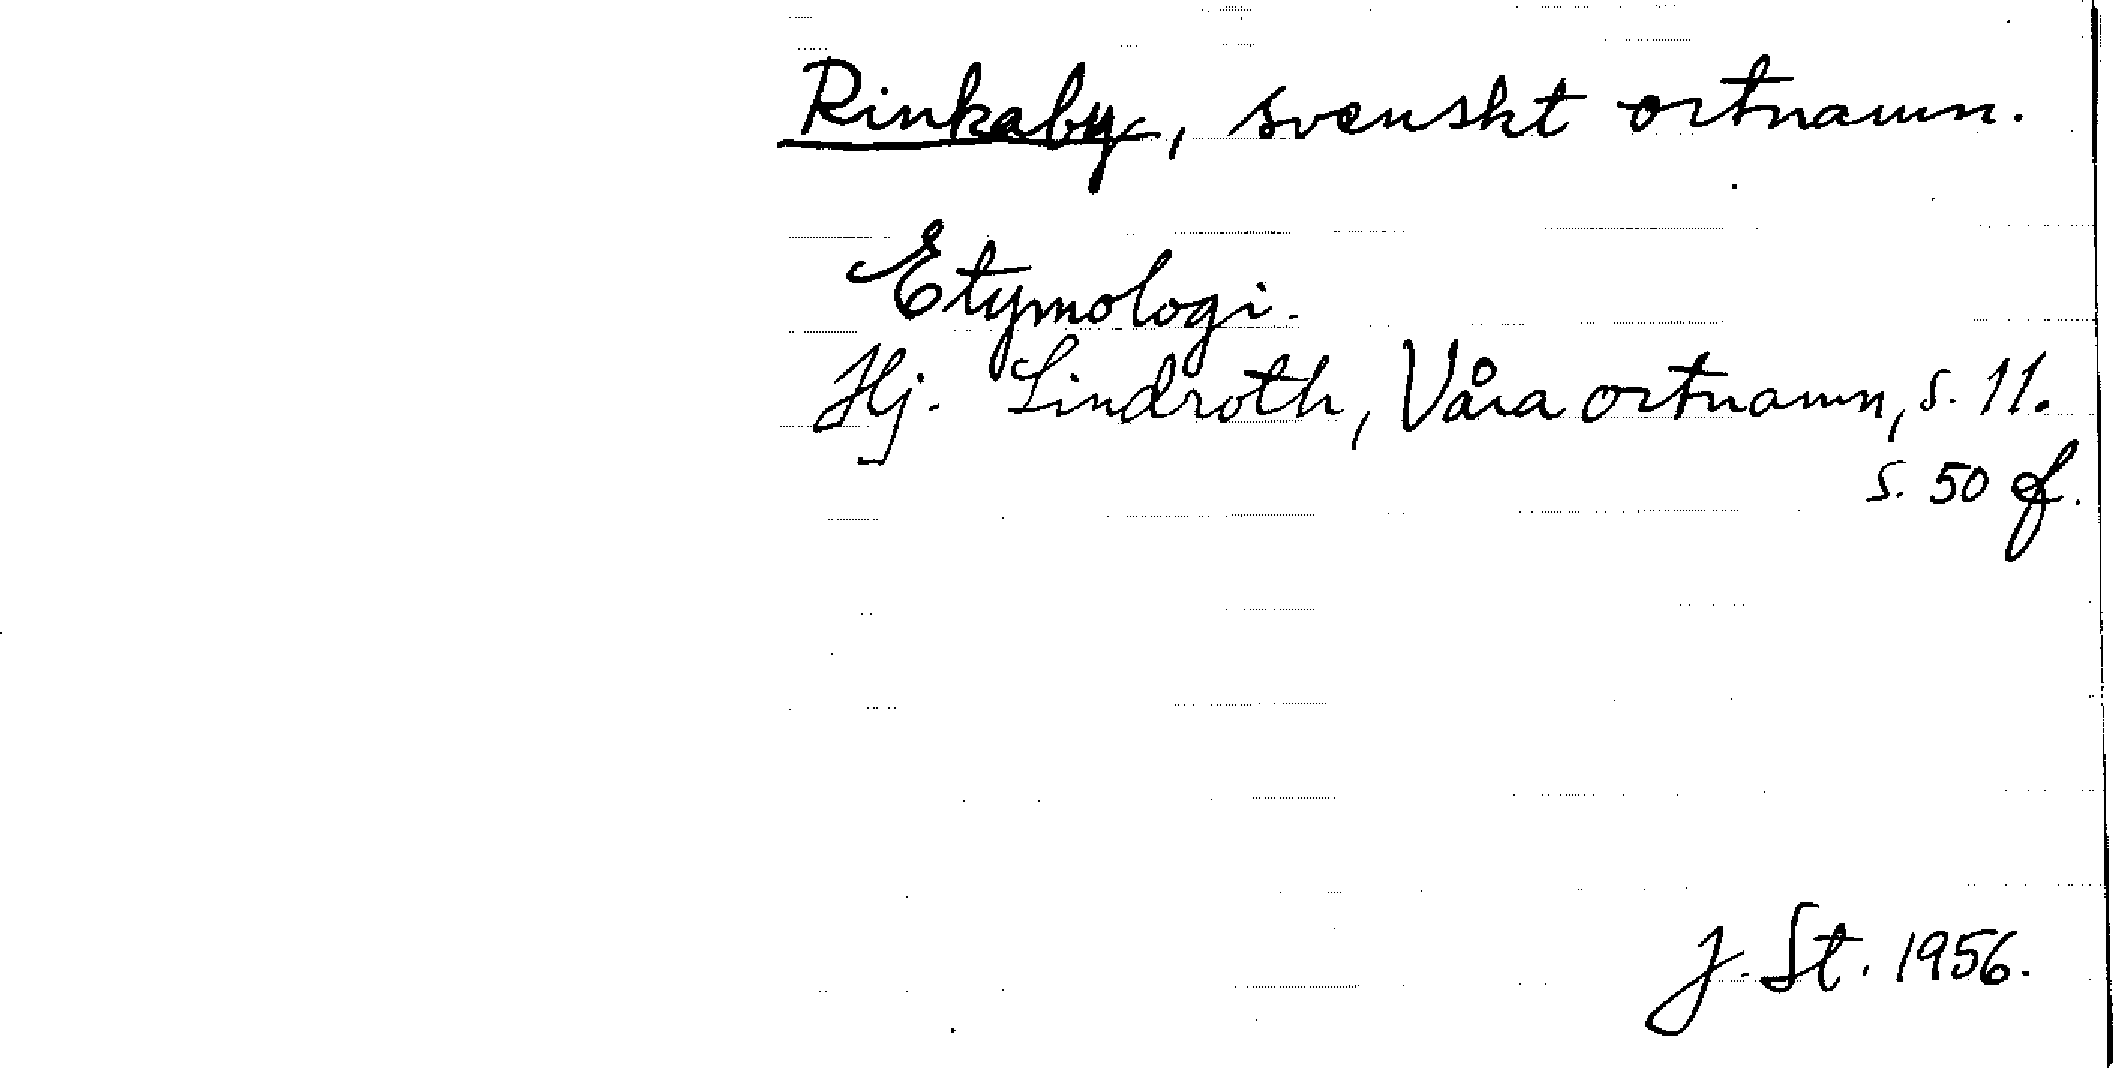 Rinkaby, svenskt ortnamn.
Etymologi.
Hj. Lindroth, Våra ortnamn, s. 11.
s. 50 f.
J. St. 1956.